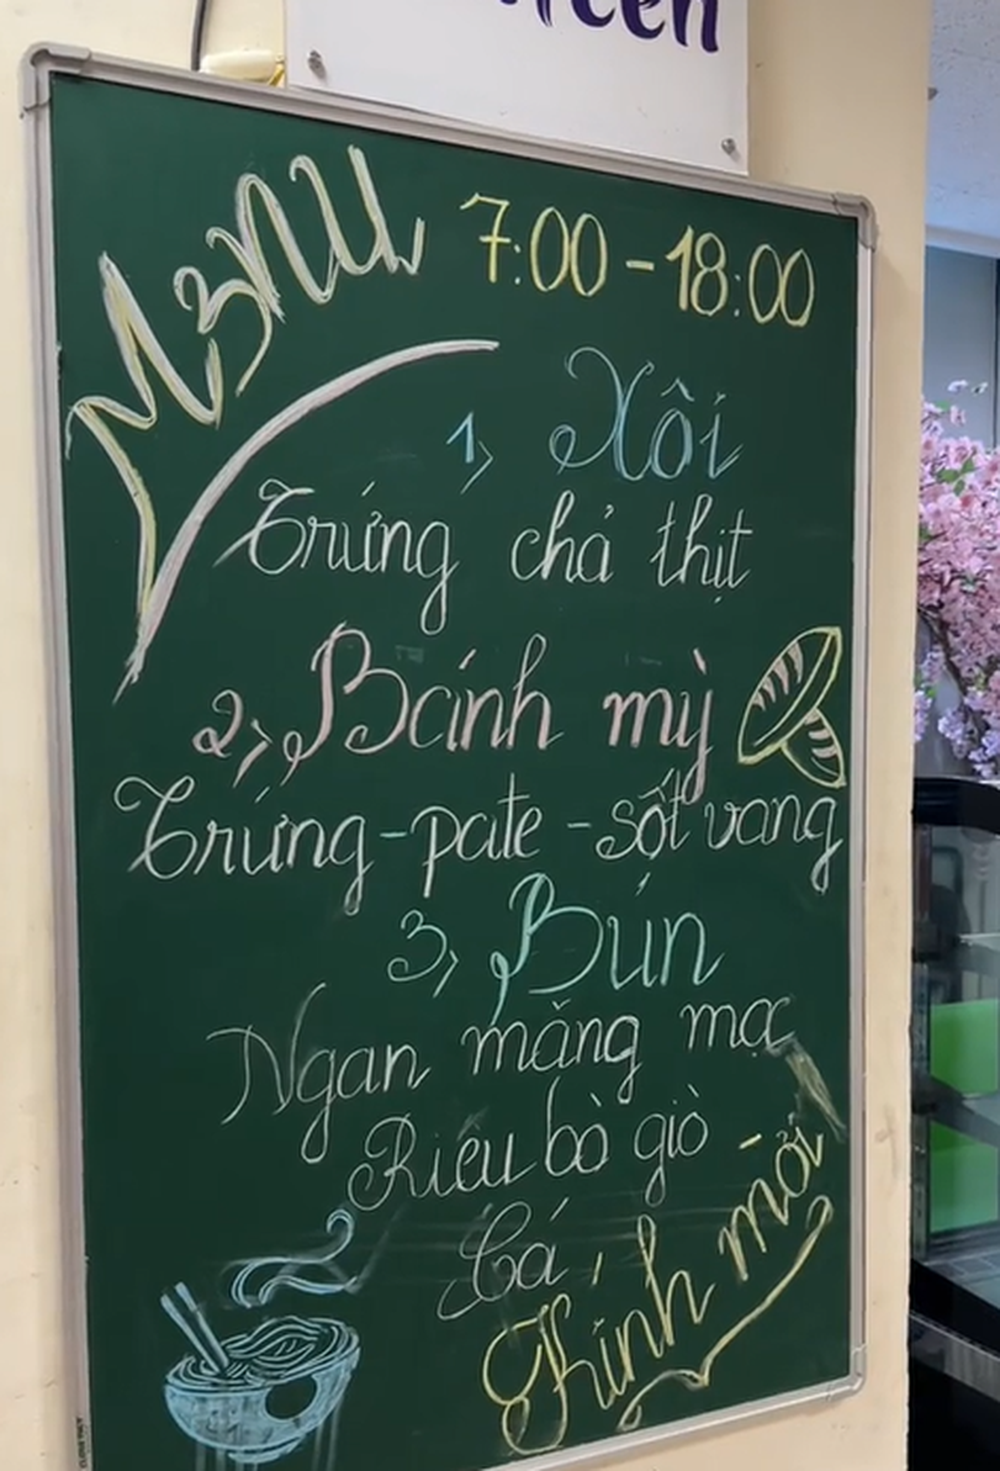 Menu
7:00 - 18:00
1, Xôi
Trứng chả thịt
2, Bánh mỳ
Trứng - pate - sốt vang
3, Bún
Ngan măng mọc
Riêu bò giò
Cá
Kính mời